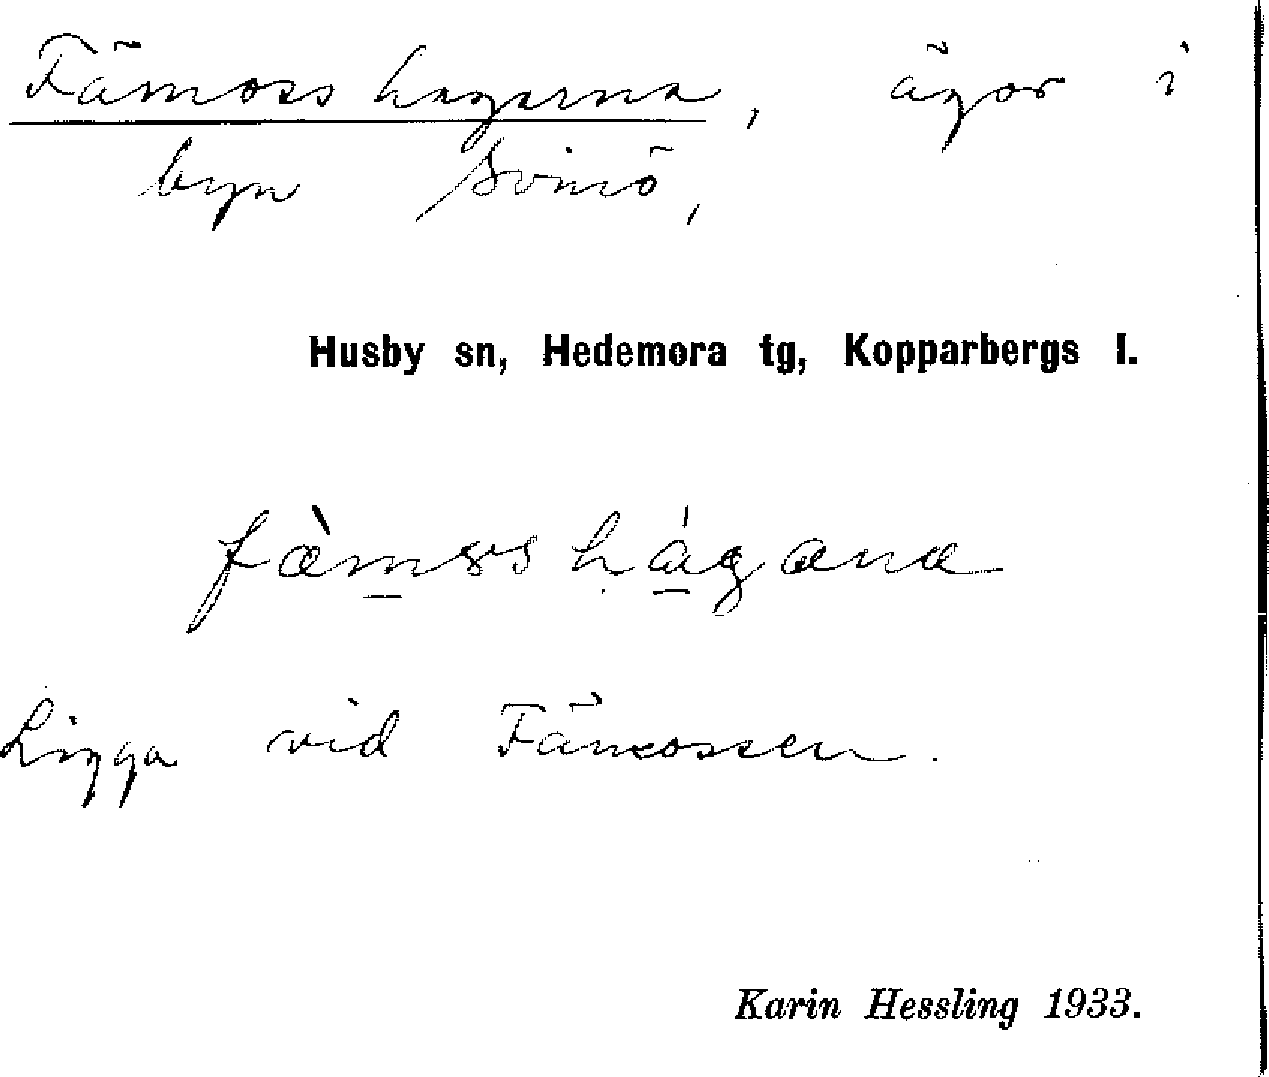 Fämosshagarna, ägor i
byn Svinö,
Husby sn, Hedemora tg, Kopparbergs l.
Ligga vid Fämossen.
Karin Hessling 1933.